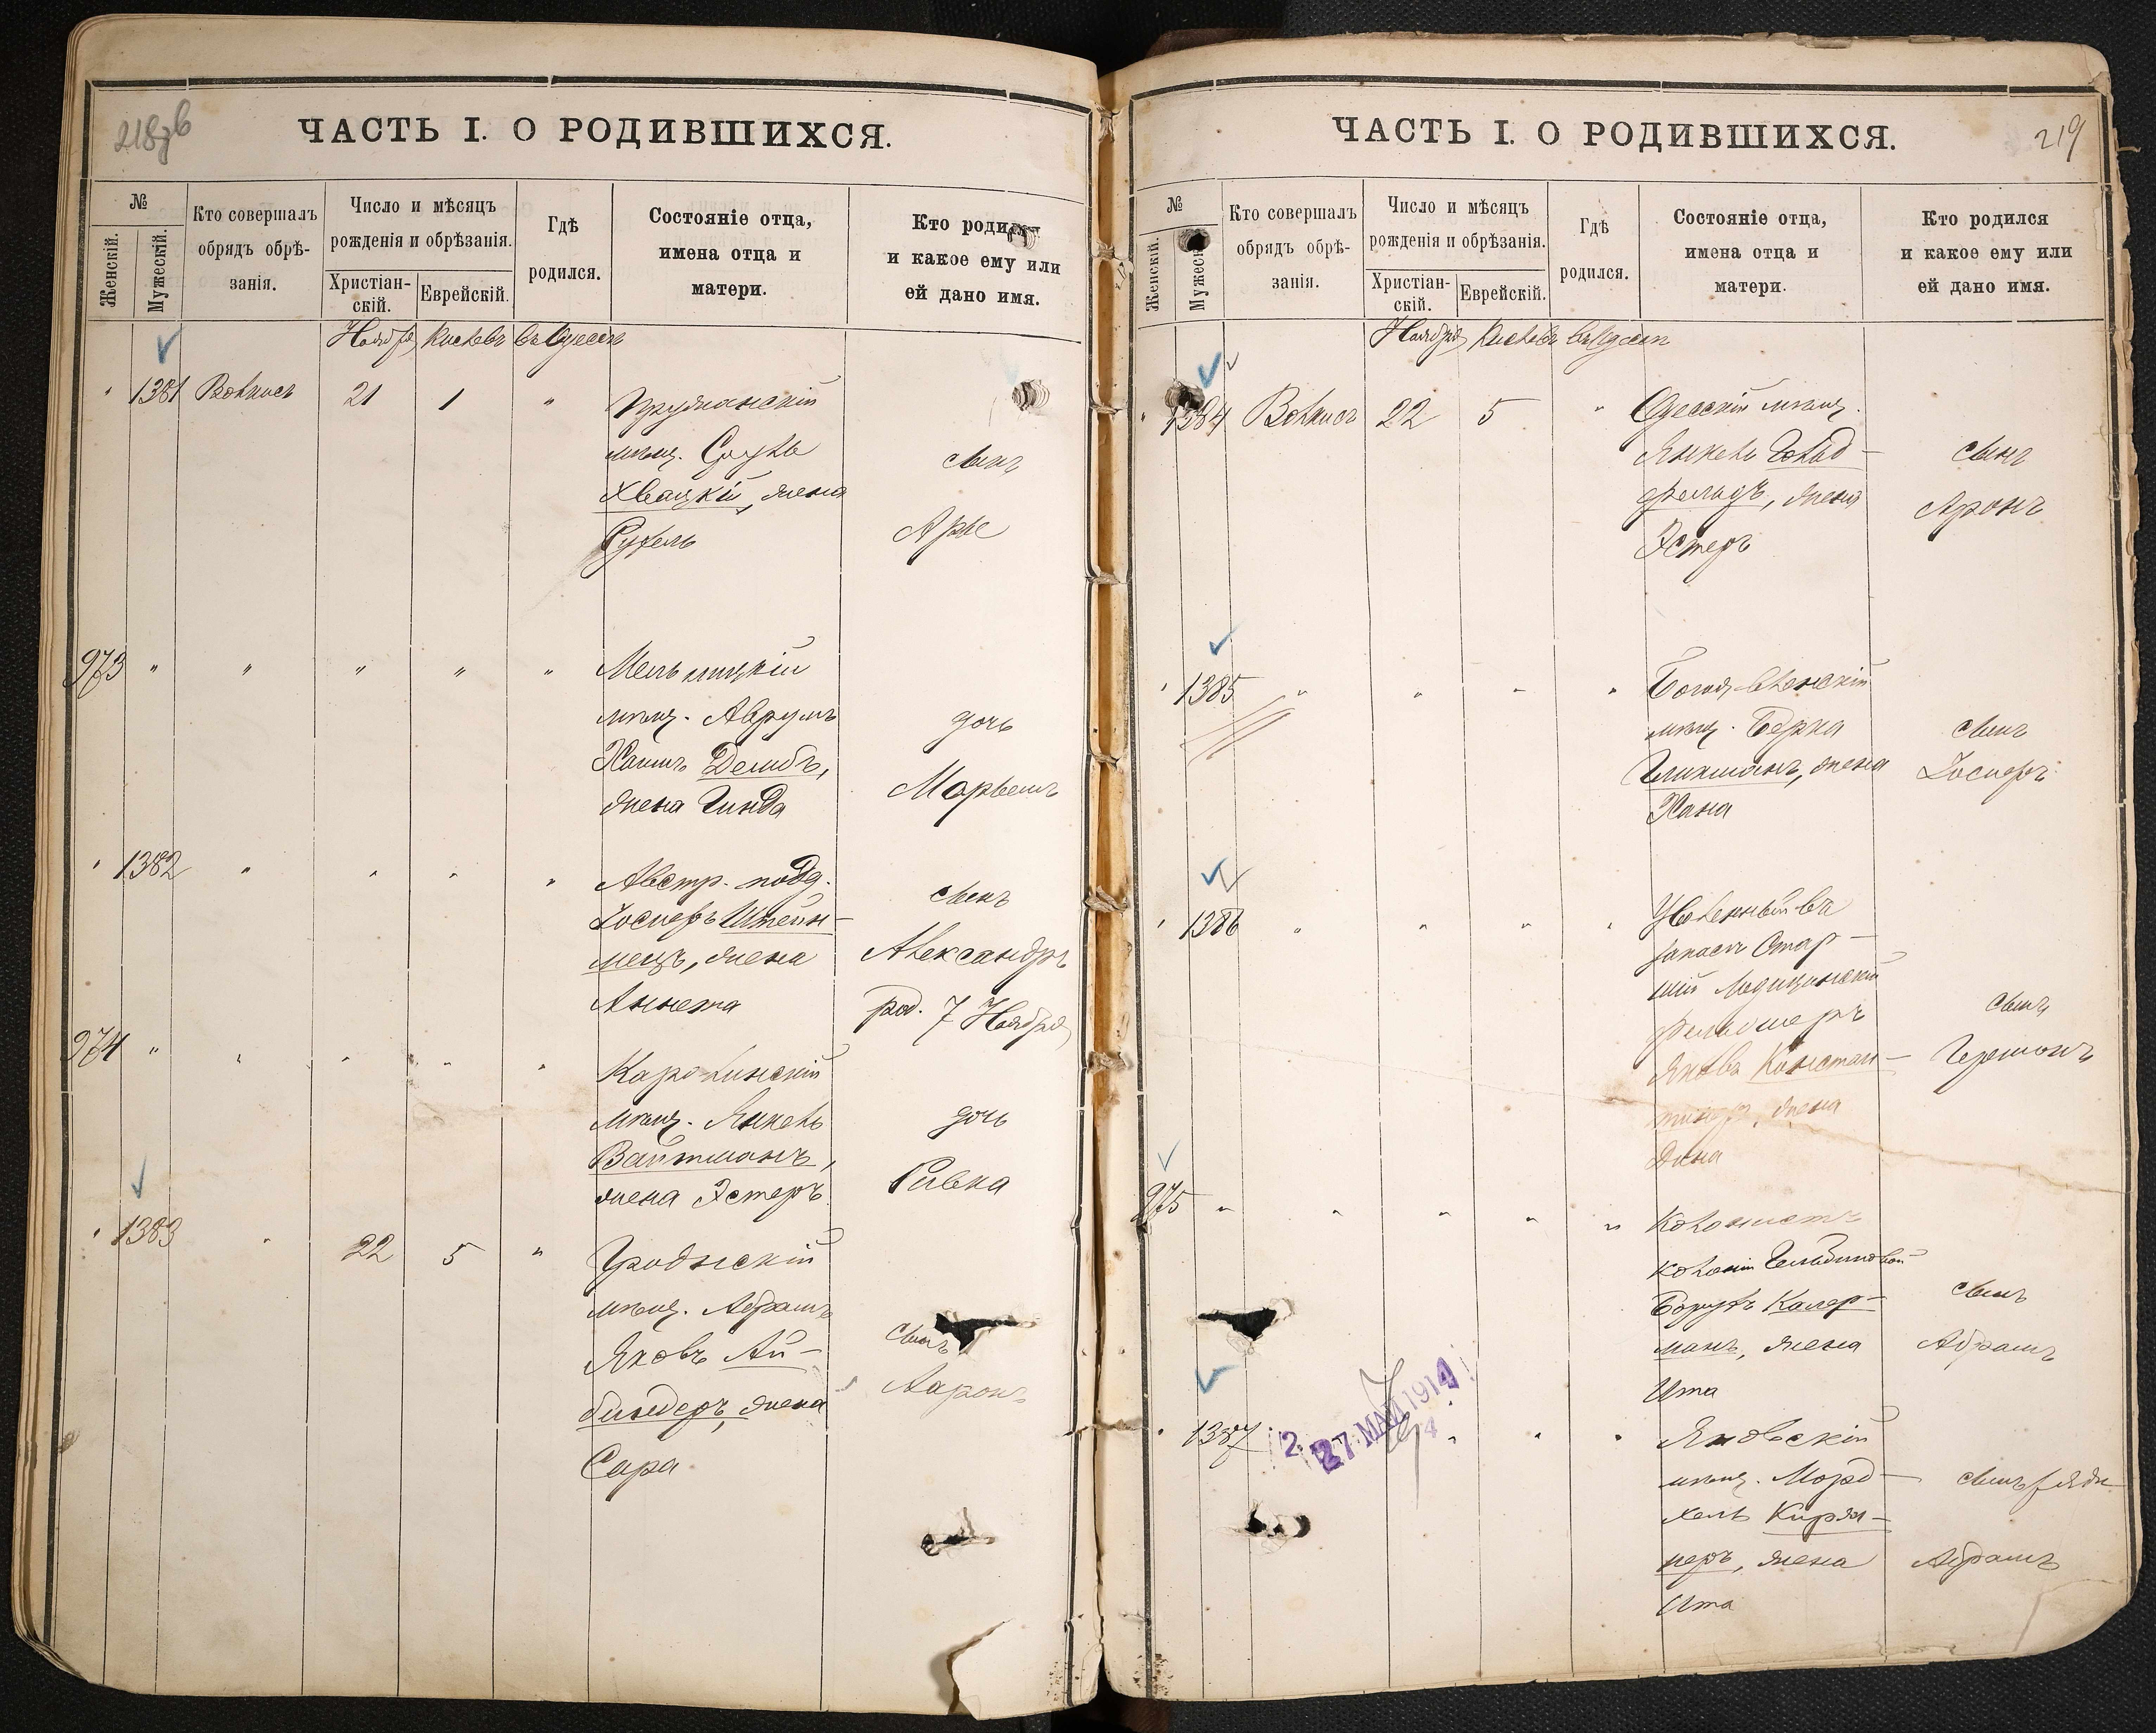 218 об
ЧАСТЬ I. О РОДИВШИХСЯ.
№
Женскій.
Мужескій.
Кто совершалъ
обрядъ обрѣ-
занія.
Число и мѣсяцъ
рожденія и обрѣзанія.
Христіан-
скій.
Еврейскій.
Гдѣ
родился.
Состояніе отца,
имена отца и
матери.
Кто родился
и какое ему или
ей дано имя.
Ноября Кислевъ въ Одессѣ
" 1381 21 1 "
мѣщ.
Хвацкій, жена
Рухель
сынъ
Арье
973 " " " " "
Мельницкій
мѣщ. Аврумъ
Хаимъ
жена Гинда
дочь
1382 " " " "
Австр. подд.
Іосифъ Штейн-
мецъ, жена
Аннета
сынъ
Александръ
род. 7 Ноября
974 " " " " "
Каролинскій
мѣщ. Янкель
Вайтманъ,
жена Эстеръ
дочь
Ривка
" 1383 " 22 5 "
Гродискій
мѣщ. Абрамъ
Яковъ Ай-
биндеръ, жена
Сара
сынъ
Ааронъ
219
ЧАСТЬ I. О РОДИВШИХСЯ.
№
Женскій.
Мужеск
Кто совершалъ
обрядъ обрѣ-
занія.
Число и мѣсяцъ
рожденія и обрѣзанія.
Христіан-
скій.
Еврейскій.
Гдѣ
родился.
Состояніе отца,
имена отца и
матери.
Кто родился
и какое ему или
ей дано имя.
Ноября Кислевъ въ Одессѣ
" 1384 22 5 "
Одесскій мѣщ.
Янкель Гольд-
фельдъ, жена
Эстеръ
сынъ
Аронъ
" 1385 " " " "
Богоявленскій
мѣщ. Берка
Гликманъ, жена
Хана
сынъ
Іосифъ
" 1386 " " " "
Уволенный въ
запасъ Стар-
шій Медицинскій
фельдшеръ
Яковъ Констан-
жена
Дина
сынъ
Гершонъ
975 " " " " "
Колонистъ
колоніи
Борухъ Калер-
манъ, жена
Ита
сынъ
Абрамъ
" 1387 " " "
2 27 МАЙ 1914
Яновскій
мѣщ. Морд-
хель Кирж-
неръ, жена
Ита
сынъ
Абрамъ